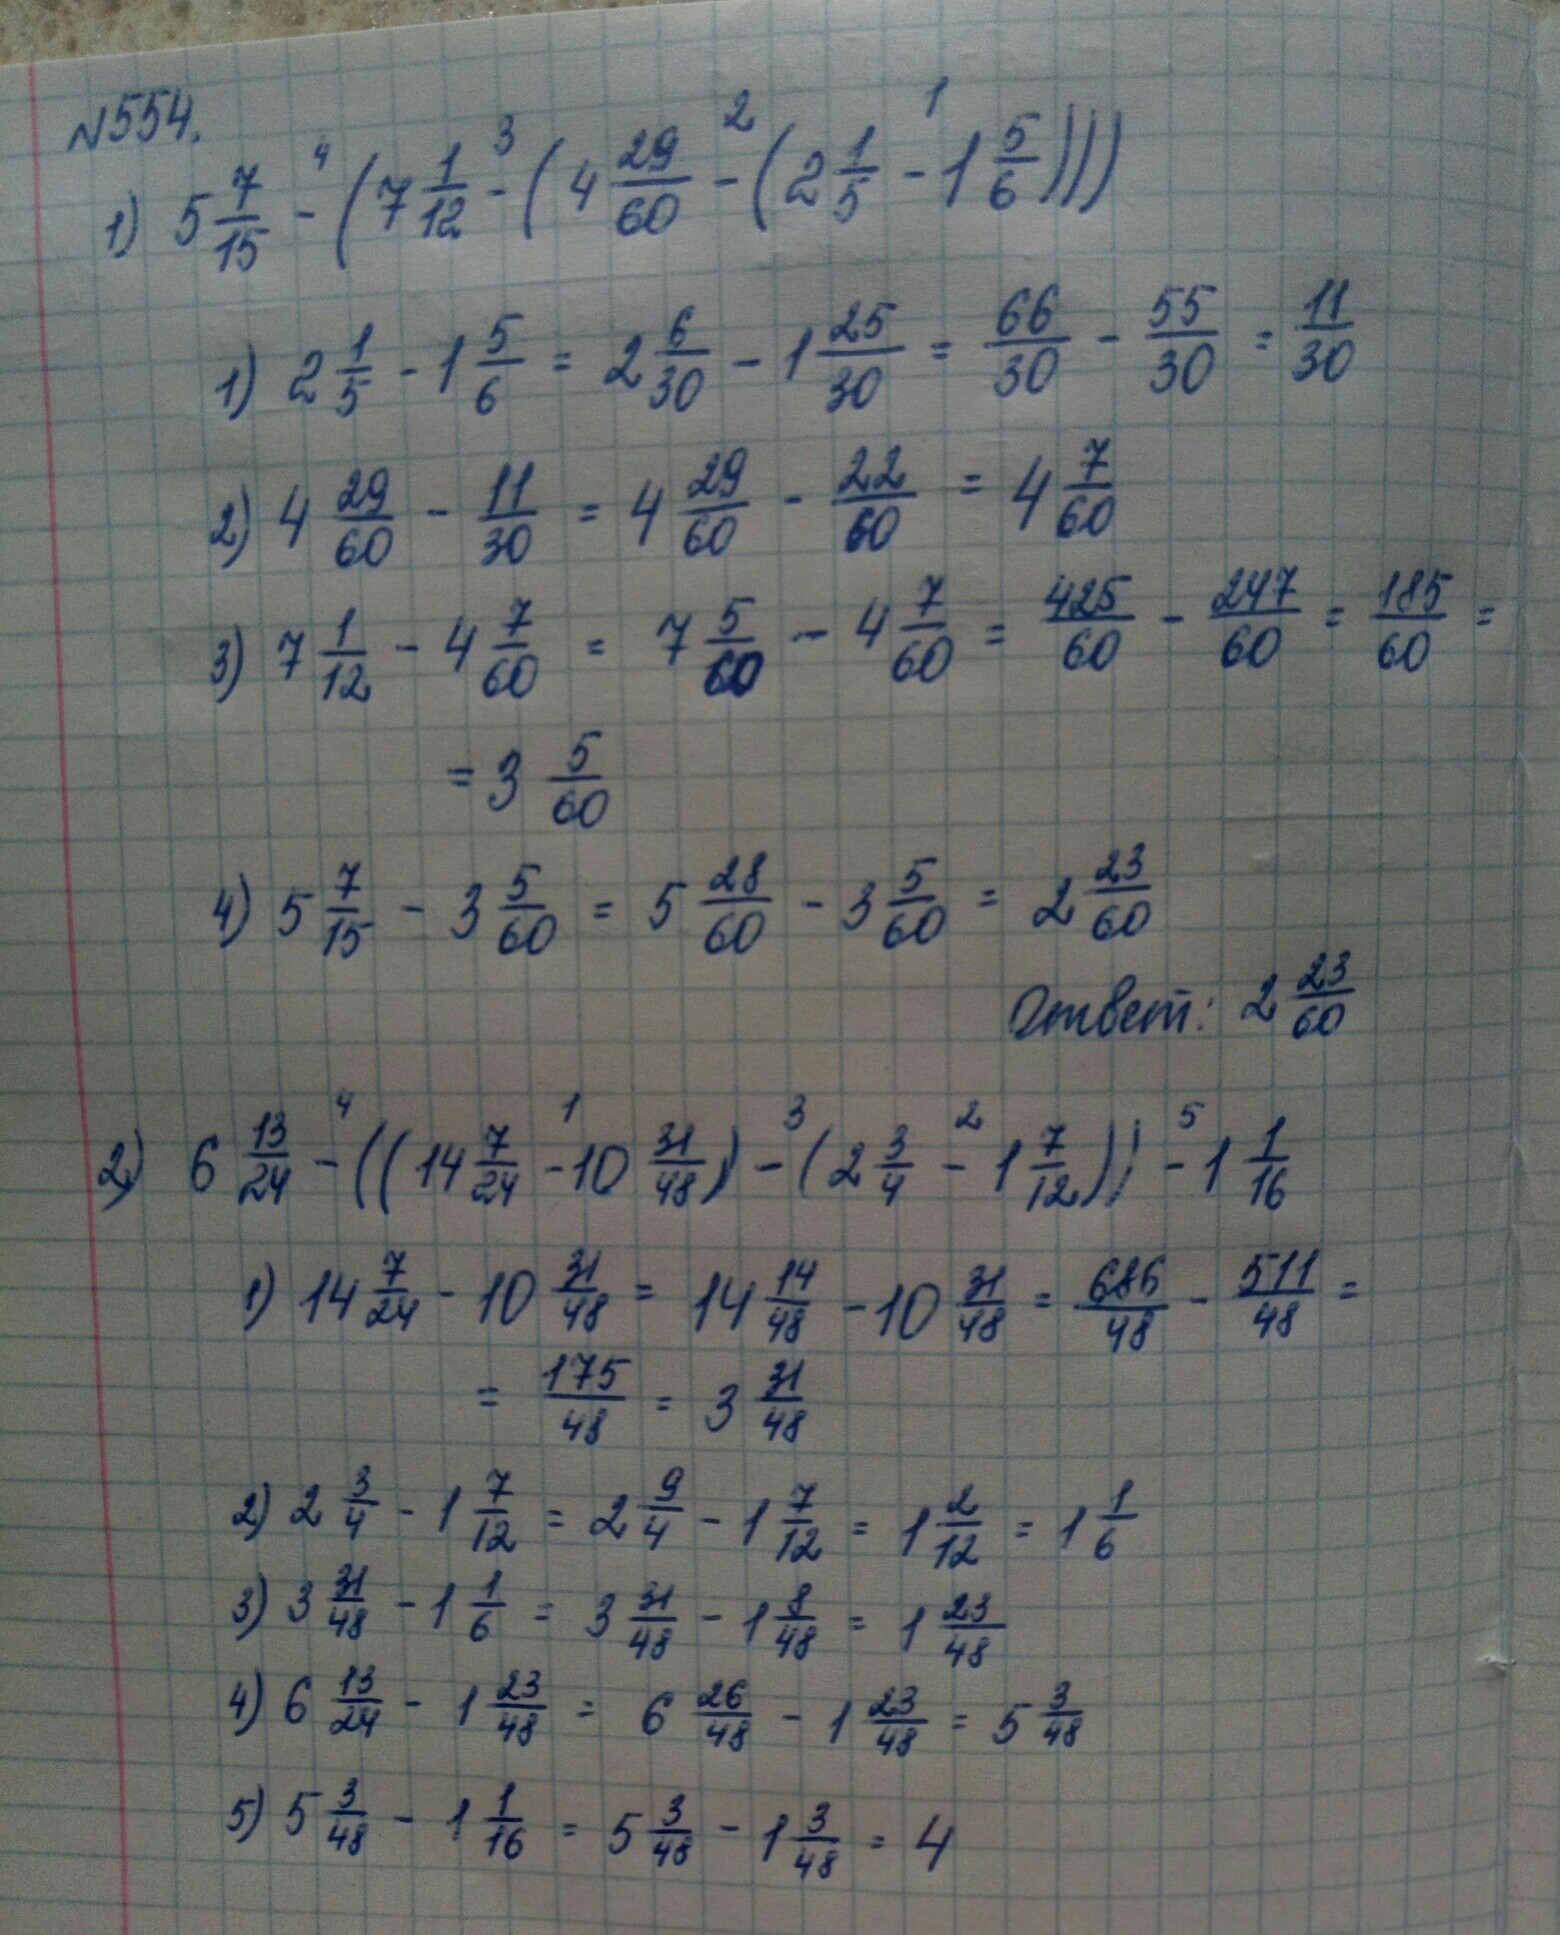 N554.
1) 5 7/15 -⁴ (7 1/12 -³ (4 29/60 -² (2 1/5 -¹ 1 5/6)))
1) 2 1/5 - 1 5/6 = 2 6/30 - 1 25/30 = 66/30 - 55/30 = 11/30
2) 4 29/60 - 11/30 = 4 29/60 - 22/60 = 4 7/60
3) 7 1/12 - 4 7/60 = 7 5/60 - 4 7/60 = 425/60 - 247/60 = 185/60 =
= 3 5/60
4) 5 7/15 - 3 5/60 = 5 28/60 - 3 5/60 = 2 23/60
Ответ: 2 23/60
2) 6 13/24 -⁴ ((14 7/24 -¹ 10 31/48) -³ (2 3/4 -² 1 7/12)) -⁵ 1 1/16
1) 14 7/24 - 10 31/48 = 14 14/48 - 10 31/48 = 686/48 - 511/48 =
= 175/48 = 3 31/48
2) 2 3/4 - 1 7/12 = 2 9/4 - 1 7/12 = 1 2/12 = 1 1/6
3) 3 31/48 - 1 1/6 = 3 31/48 - 1 8/48 = 1 23/48
4) 6 13/24 - 1 23/48 = 6 26/48 - 1 23/48 = 5 3/48
5) 5 3/48 - 1 1/16 = 5 3/48 - 1 3/48 = 4